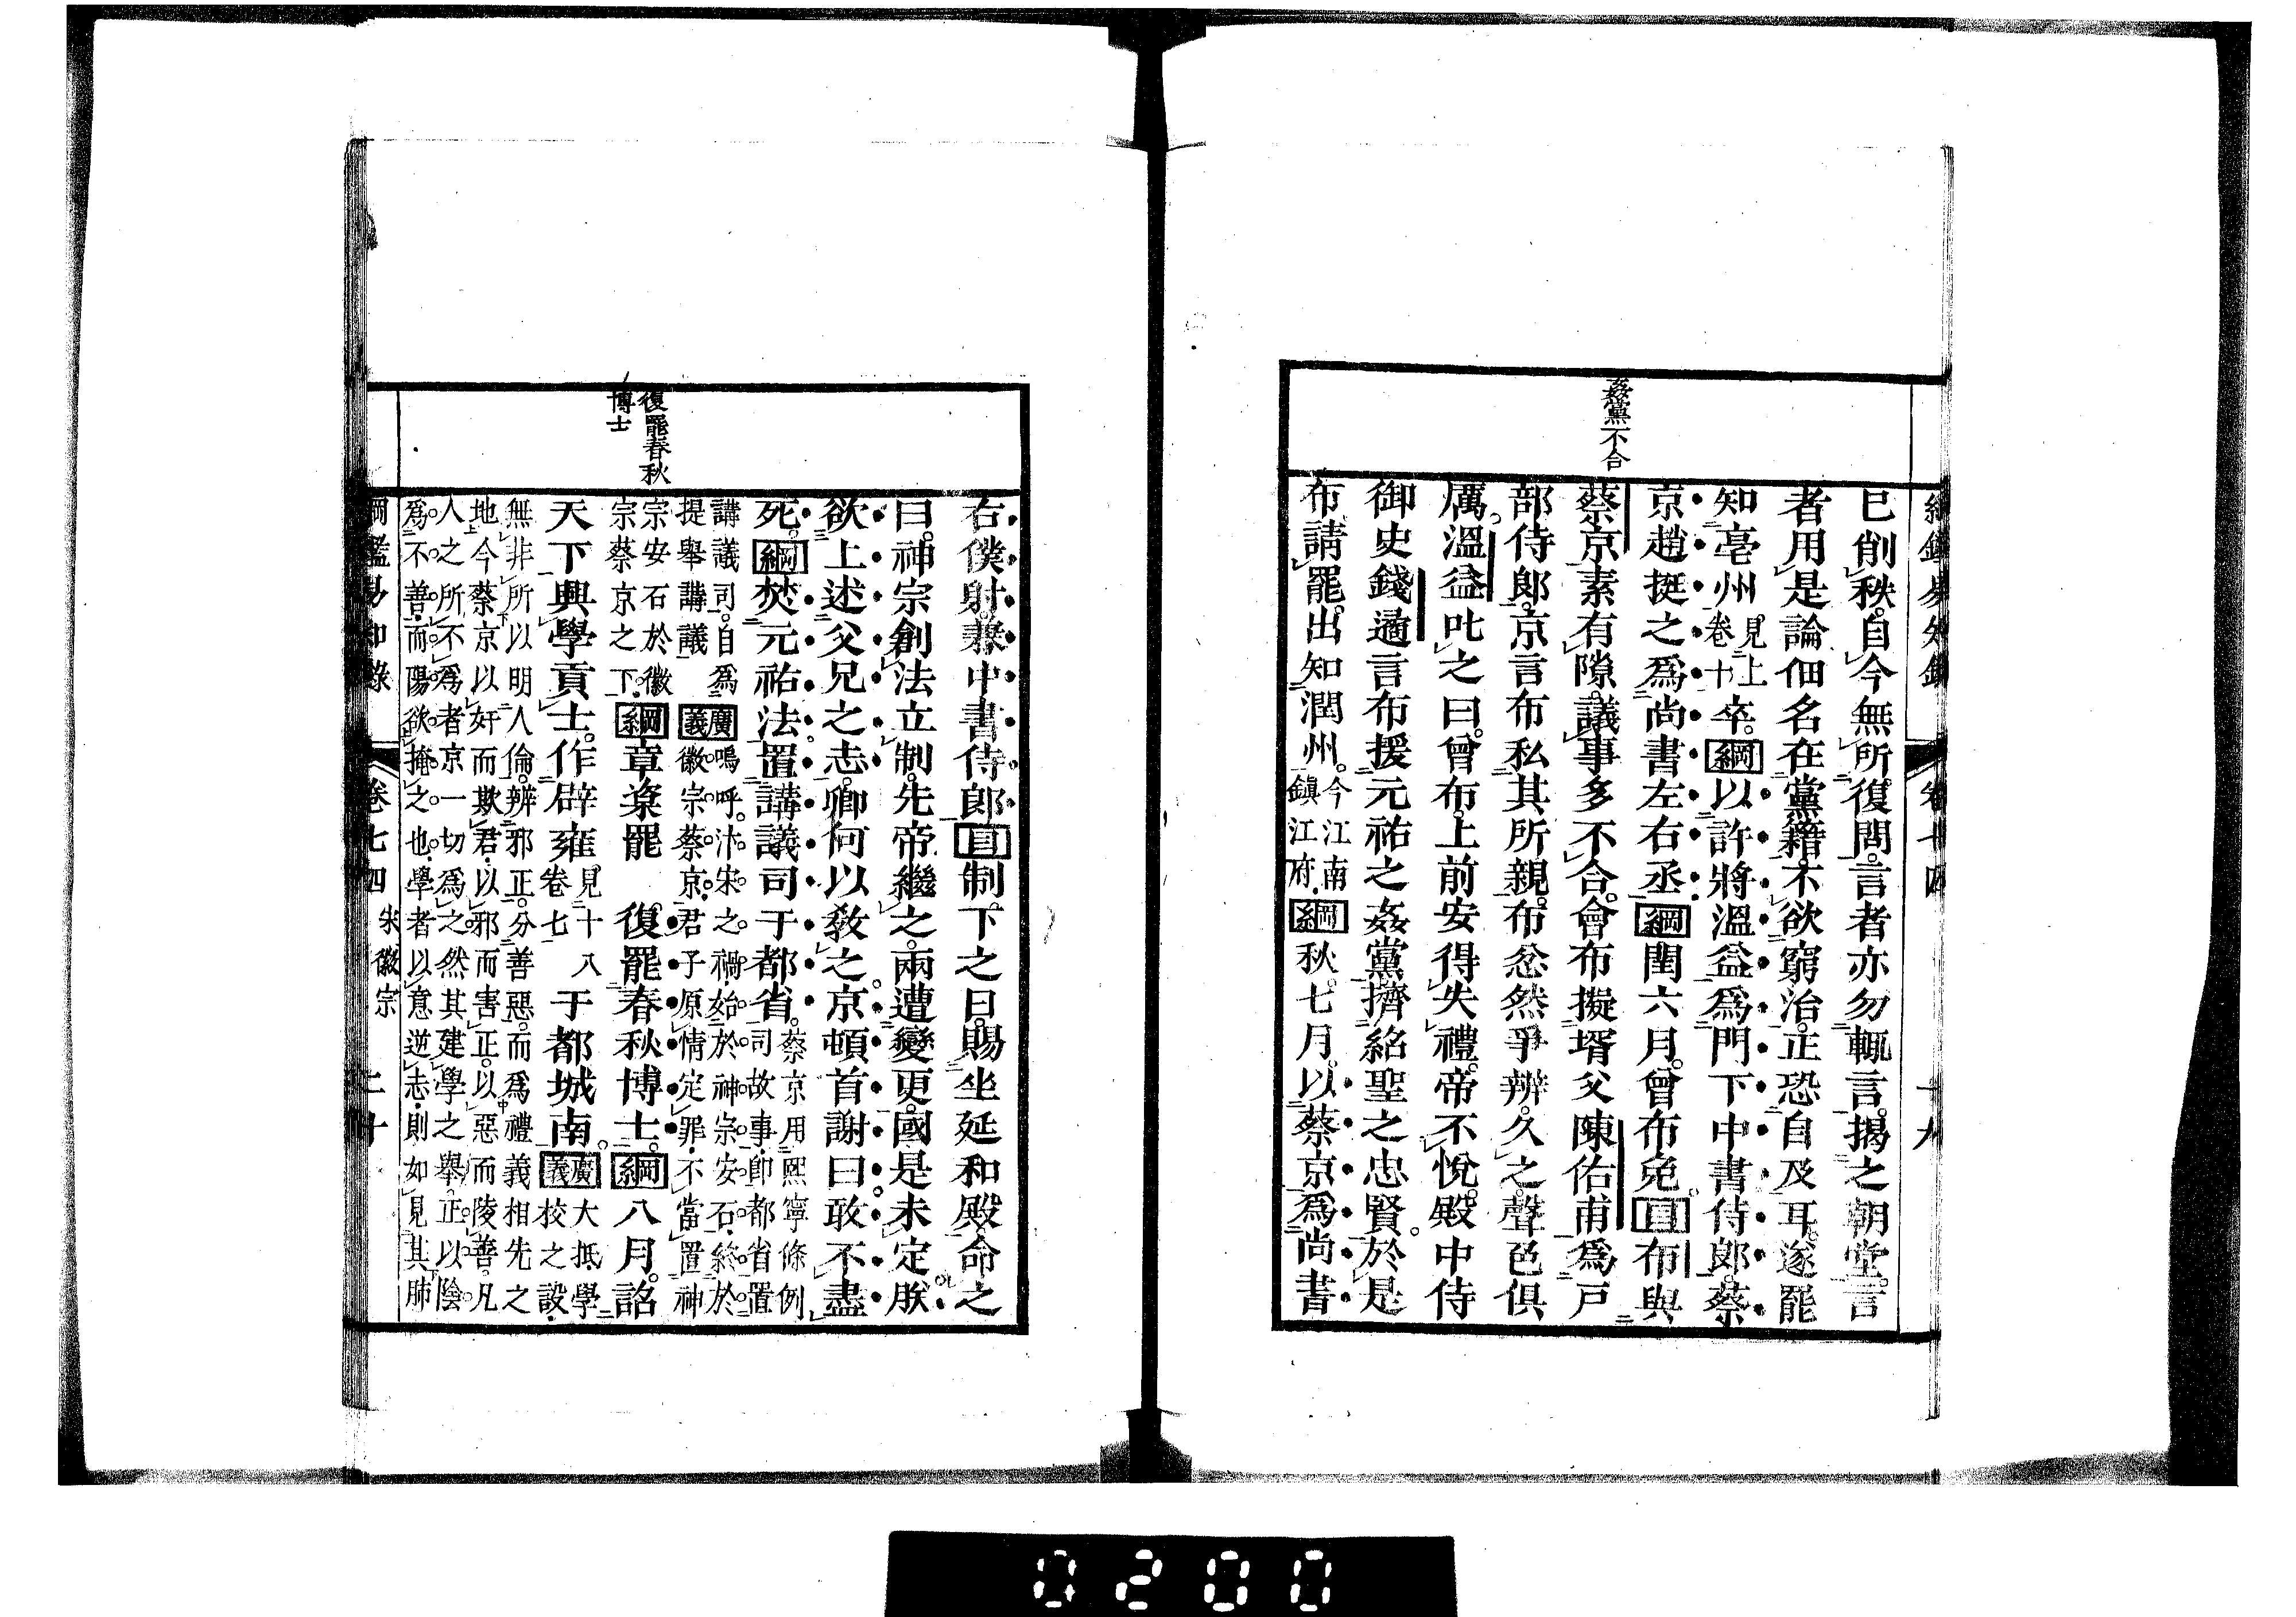 姦黨不合
已削秩。自今無所復問。言者亦勿輒言。揭之朝堂。言
者用是論佃名在黨籍。不欲窮治。正恐自及耳。遂罷
知亳州。見上卷十卒。綱以許將溫益爲門下中書侍郎。蔡
京趙挺之爲尚書左右丞。綱閏六月。曾布免。目布與
蔡京素有隙。議事多不合。會布擬壻父陳佑甫爲戸
部侍郎。京言布私其所親。布忿然爭辨。久之。聲色俱
厲。溫益叱之曰。曾布。上前安得失禮。帝不悅。殿中侍
御史錢遹言布援元祐之姦黨。擠紹聖之忠賢。於是
布請罷。出知潤州。今江南鎮江府。綱秋。七月。以蔡京爲尚書
復罷春秋
博士
右僕射。兼中書侍郎。目制下之日。賜坐延和殿。命之
曰。神宗創法立制。先帝繼之。兩遭變更。國是未定。朕
欲上述父兄之志。卿何以敎之。京頓首謝曰。敢不盡
死。綱焚元祐法。置講議司于都省。蔡京用熙寧條例
司故事。卽都省置
講議司。自爲廣嗚呼。汴宋之禍。始於神宗安石。終於
提舉講議義徽宗蔡京。君子原情定罪。不當置神
宗安石於徽
宗蔡京之下。綱章楶罷 復罷春秋博士。綱八月。詔
天下興學貢士。作辟雍見十八卷七于都城南。廣義大抵學
校之設。
無非所以明人倫。辨邪正。分善惡。而爲禮義相先之
地。今蔡京以奸而欺君。以邪而害正。以惡而陵善。凡
人之所不爲者。京一切爲之。然其建學之舉。正以陰
爲不善。而陽欲掩之也。學者以意逆志。則如見其肺
綱鑑易知錄 卷七四 宋徽宗 二十